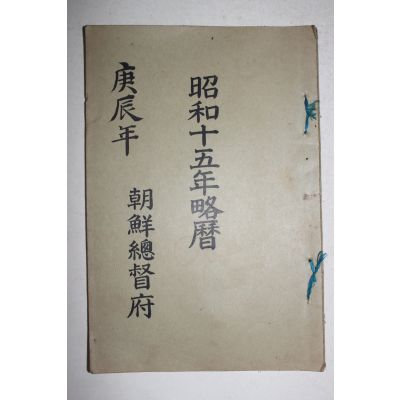 昭和十五年略曆
庚辰年
朝鮮總督府